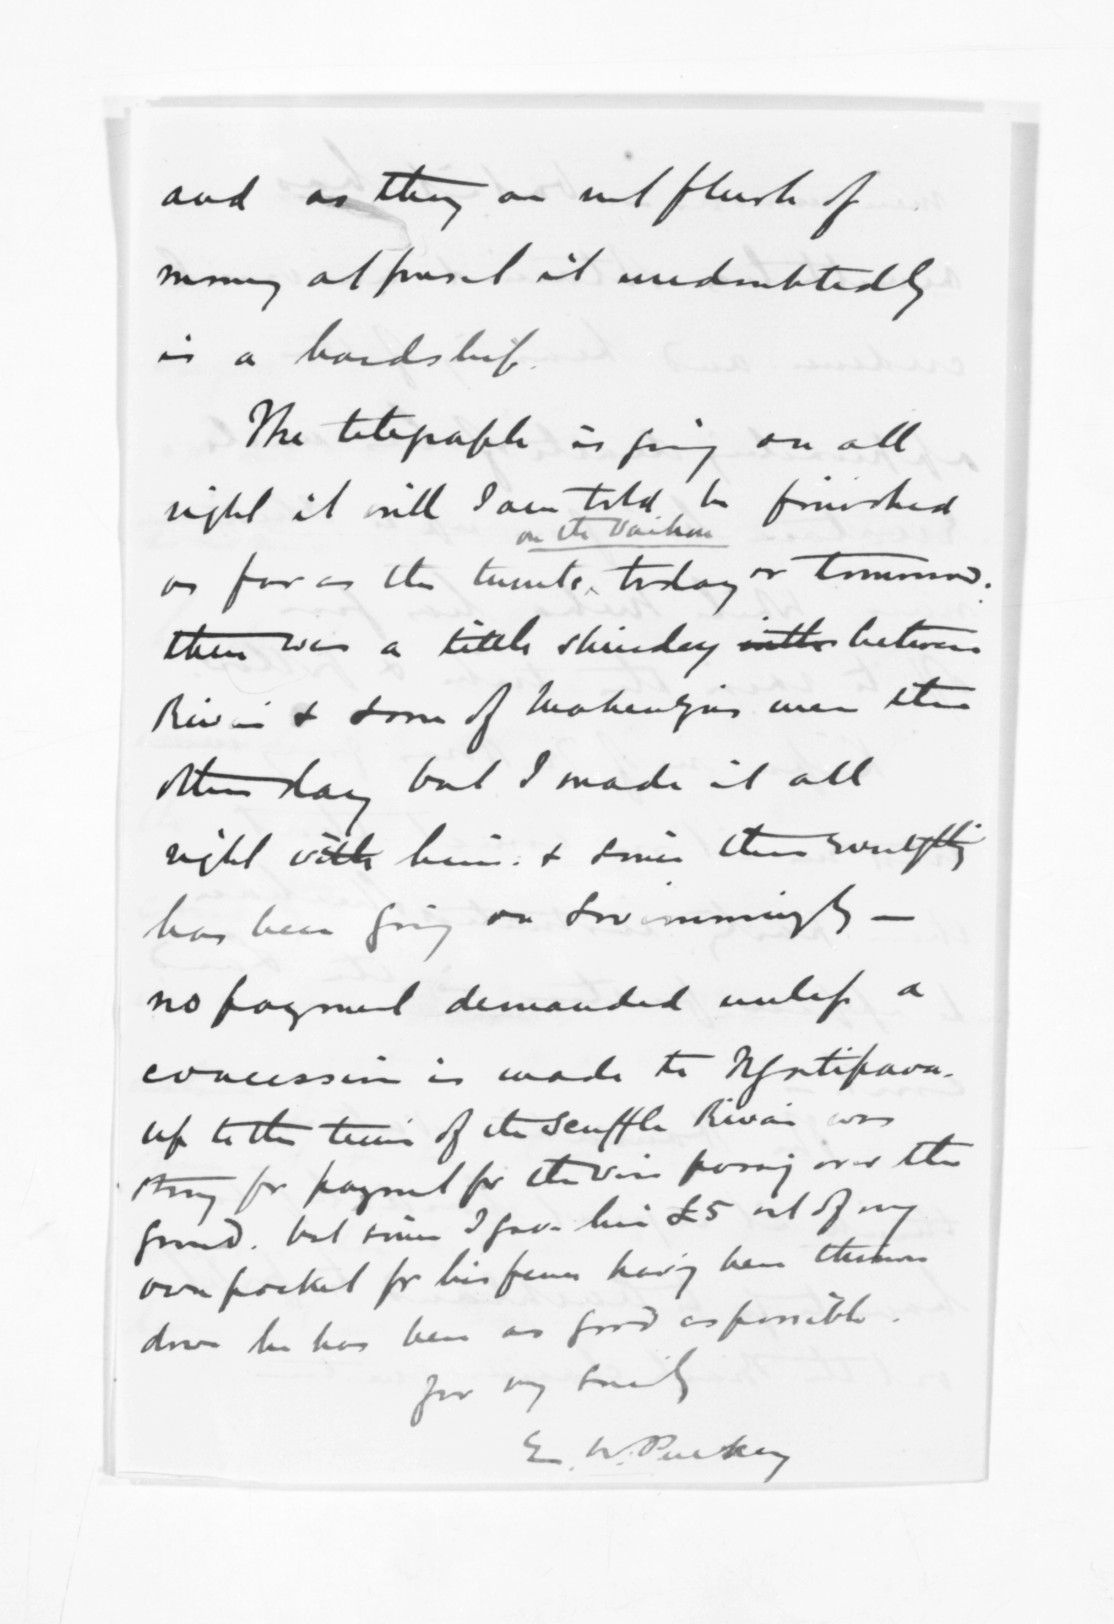 and as they are not flush of
money at present it undoubtedly
is a hardship.
The telegraph is going on all
right it will I am told be finished
on the Waihou
as far as the tunnels, today or tomorrow.
there was a little shindy between
Riwai & some of Mahengins men the
other day but I made it all
right with him. & since then everything
has been going on swimmingly —
no payment demanded unless a
concession is made to Ngatipaoa.
up to the time of the scuffle Riwai was
strong for payment for the wire passing over the
ground. but since I gave him £5 out of my
own pocket for his fence having been thrown
down he has been as good as possible.
for my sincerely
E. W. Puckey